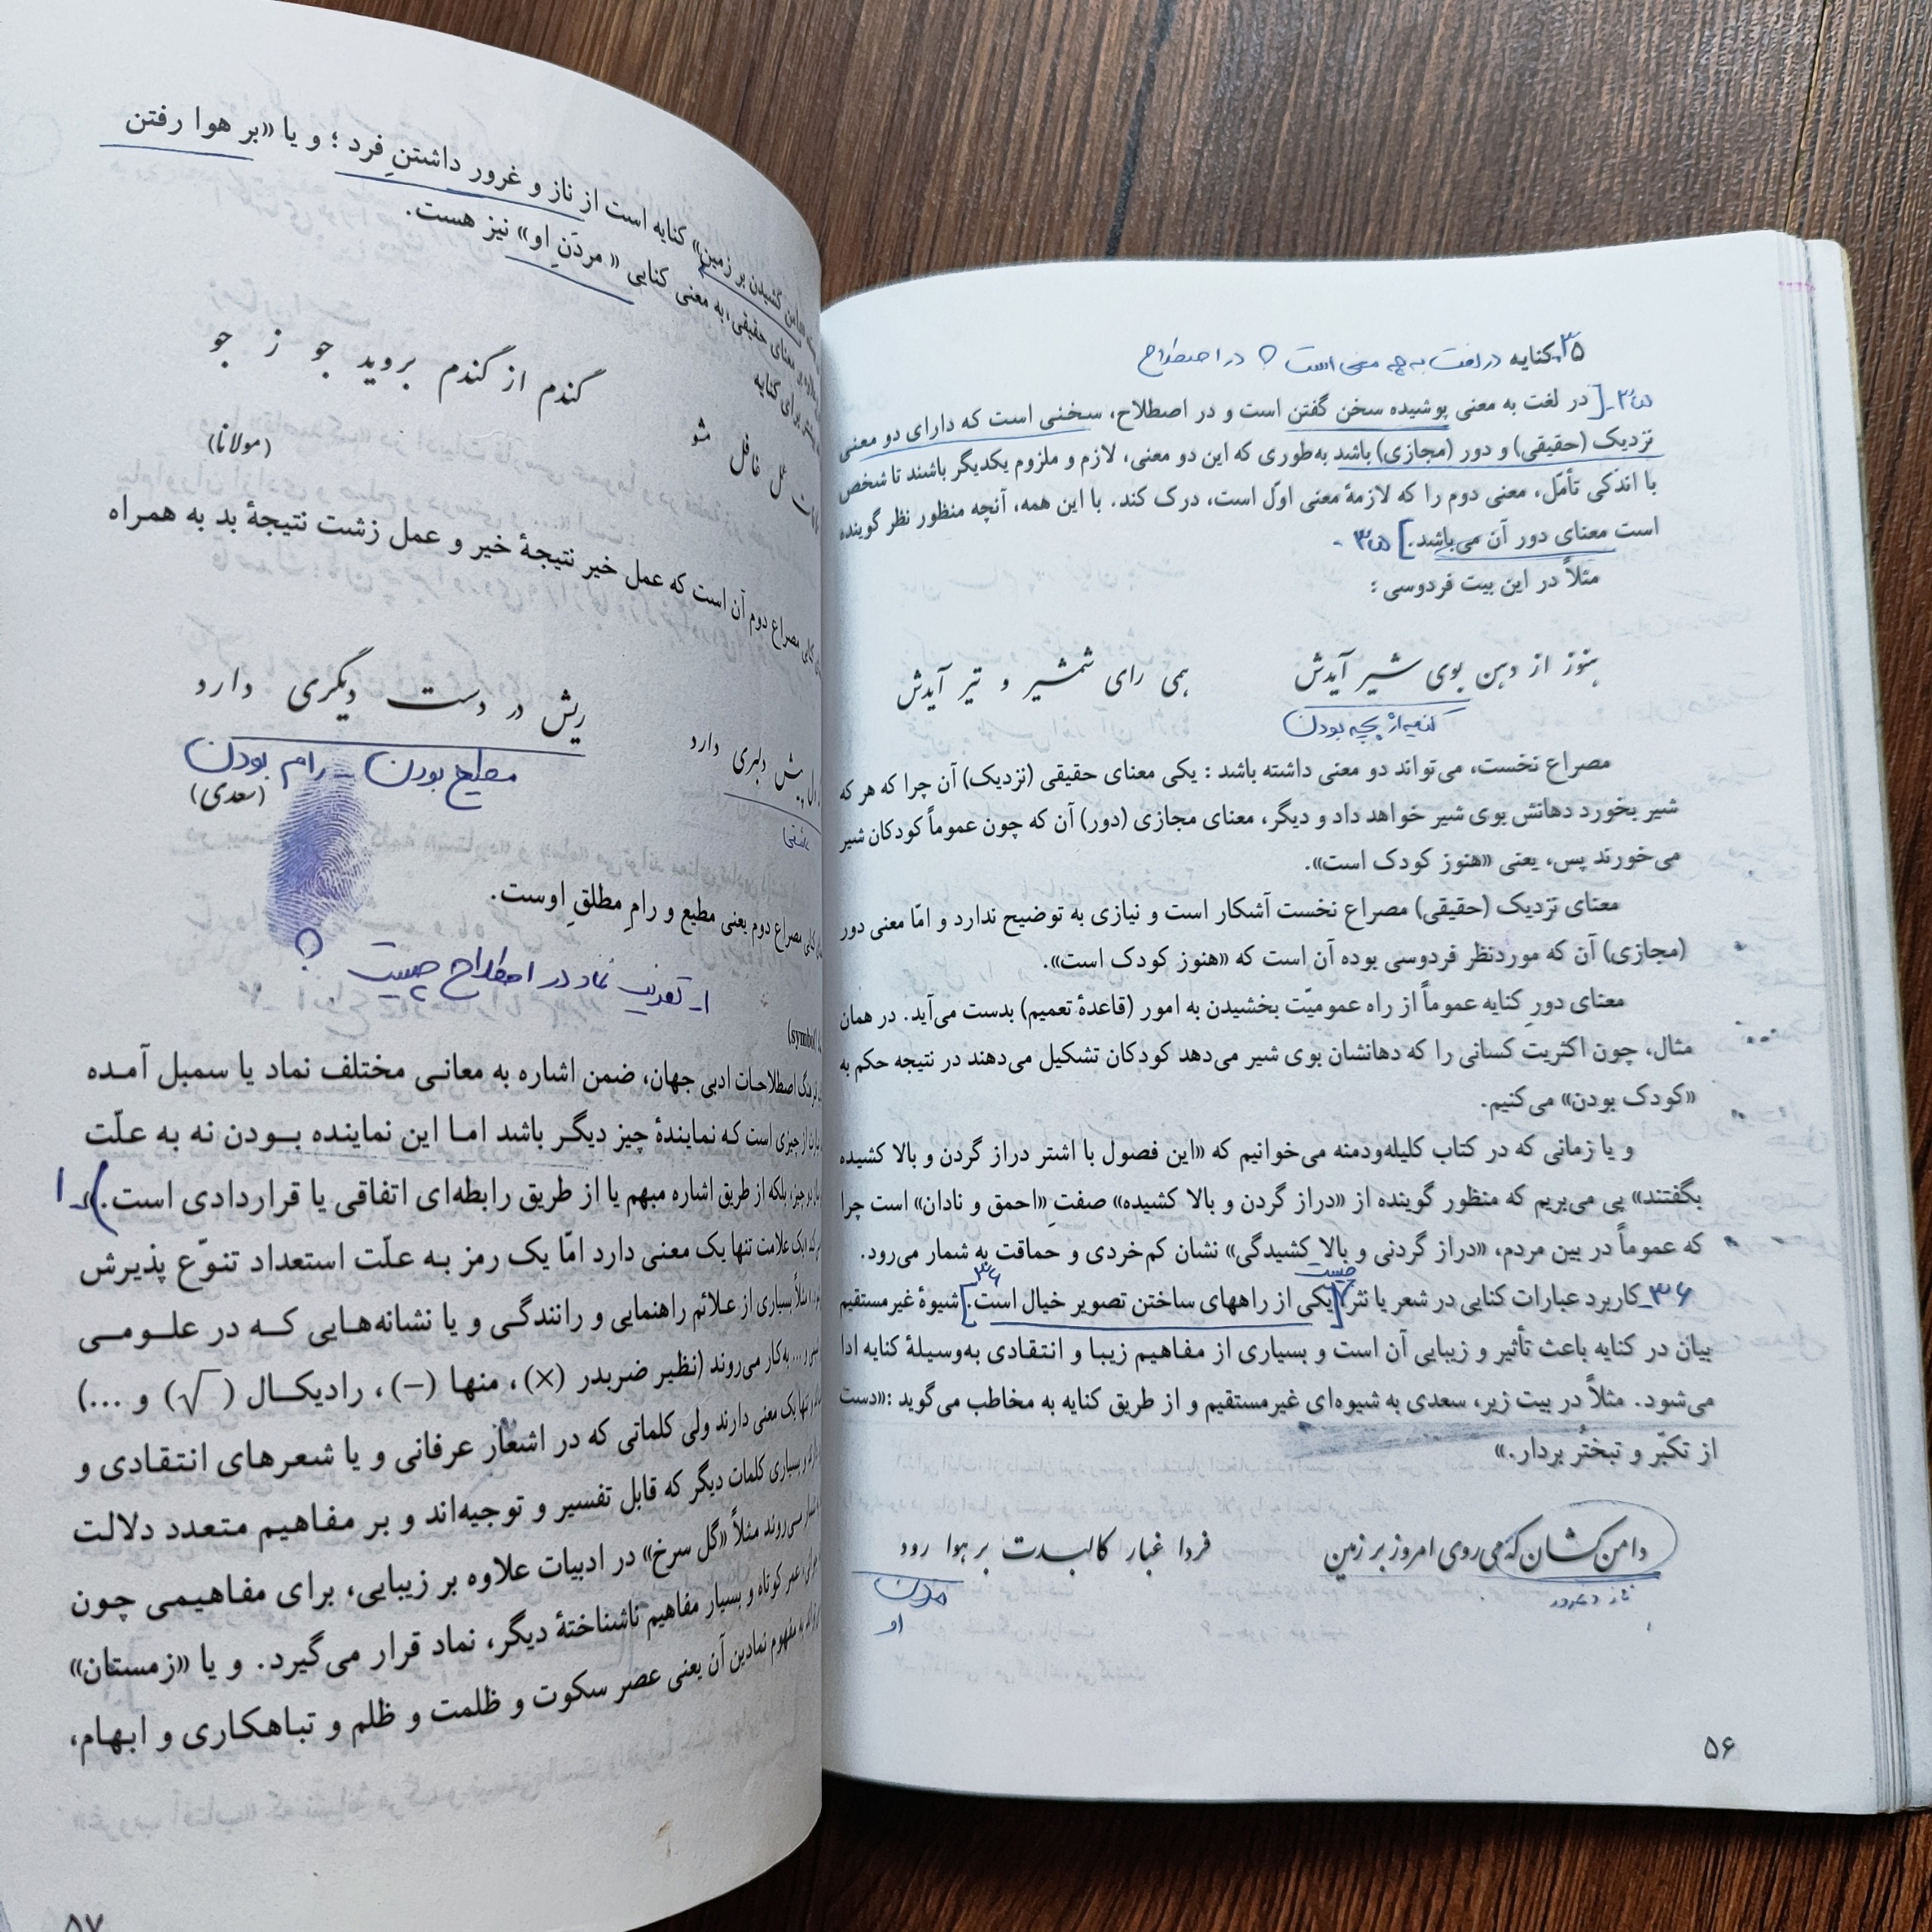 ۳۵ـ کنایه در لغت به چه معنی است ؟ در اصطلاح
۳۵ـ [در لغت به معنی پوشیده سخن گفتن است و در اصطلاح، سخنی است که دارای دو معنی
نزدیک (حقیقی) و دور (مجازی) باشد به‌طوری که این دو معنی، لازم و ملزوم یکدیگر باشند تا شخص
با اندکی تأمّل، معنی دوم را که لازمهٔ معنی اوّل است، درک کند. با این همه، آنچه منظور نظر گوینده
است معنای دور آن می‌باشد.] ۳۵ -
مثلاً در این بیت فردوسی :
هنوز از دهن بوی شیر آیدش همی رای شمشیر و تیر آیدش
کنایه از بچه بودن
مصراع نخست، می‌تواند دو معنی داشته باشد : یکی معنای حقیقی (نزدیک) آن چرا که هر که
شیر بخورد دهانش بوی شیر خواهد داد و دیگر، معنای مجازی (دور) آن که چون عموماً کودکان شیر
می‌خورند پس، یعنی «هنوز کودک است».
معنای نزدیک (حقیقی) مصراع نخست آشکار است و نیازی به توضیح ندارد و امّا معنی دور
(مجازی) آن که موردنظر فردوسی بوده آن است که «هنوز کودک است».
معنای دورِ کنایه عموماً از راه عمومیّت بخشیدن به امور (قاعدهٔ تعمیم) بدست می‌آید. در همان
مثال، چون اکثریت کسانی را که دهانشان بوی شیر می‌دهد کودکان تشکیل می‌دهند در نتیجه حکم به
«کودک بودن» می‌کنیم.
و یا زمانی که در کتاب کلیله‌ودمنه می‌خوانیم که «این فصول با اشتر دراز گردن و بالا کشیده
بگفتند» پی می‌بریم که منظور گوینده از «دراز گردن و بالا کشیده» صفتِ «احمق و نادان» است چرا
که عموماً در بین مردم، «دراز گردنی و بالا کشیدگی» نشان کم‌خردی و حماقت به شمار می‌رود.
چیست ۳۶
۳۶ـ کاربرد عبارات کنایی در شعر یا نثر [یکی از راههای ساختن تصویر خیال است.] شیوهٔ غیرمستقیم
بیان در کنایه باعث تأثیر و زیبایی آن است و بسیاری از مفاهیم زیبا و انتقادی به‌وسیلهٔ کنایه ادا
می‌شود. مثلاً در بیت زیر، سعدی به شیوه‌ای غیرمستقیم و از طریق کنایه به مخاطب می‌گوید :«دست
از تکبّر و تبختُر بردار.»
دامن کشان که می‌روی امروز بر زمین فردا غبار کالبدت بر هوا رود
ناز و غرور مردن
او
۵۶
دامن کشیدن بر زمین» کنایه است از ناز و غرور داشتنِ فرد ؛ و یا «بر هوا رفتن
معنای حقیقی، به معنی کنایی « مردَنِ او» نیز هست.
برای کنایه
غافل مشو گندم از گندم بروید جو ز جو
(مولانا)
مصراع دوم آن است که عمل خیر نتیجهٔ خیر و عمل زشت نتیجهٔ بد به همراه
دلبری دارد ریش در دست دیگری دارد
مطیع بودن ـ رام بودن
(سعدی)
مصراع دوم یعنی مطیع و رامِ مطلقِ اوست.
۱ـ تعریف نماد در اصطلاح چیست ؟
(symbol)
اصطلاحات ادبی جهان، ضمن اشاره به معانی مختلف نماد یا سمبل آمده
از چیزی است که نمایندهٔ چیز دیگر باشد اما این نماینده بودن نه به علّت
چیز، بلکه از طریق اشاره مبهم یا از طریق رابطه‌ای اتفاقی یا قراردادی است.) ـ ۱
یک علامت تنها یک معنی دارد امّا یک رمز به علّت استعداد تنوّع پذیرش
مثلاً بسیاری از علائم راهنمایی و رانندگی و یا نشانه‌هایی که در علومی
... به‌کار می‌روند (نظیر ضربدر (×)، منها (−)، رادیکال (√) و ...)
تنها یک معنی دارند ولی کلماتی که در اشعار عرفانی و یا شعرهای انتقادی و
بسیاری کلمات دیگر که قابل تفسیر و توجیه‌اند و بر مفاهیم متعدد دلالت
می‌روند مثلاً «گل سرخ» در ادبیات علاوه بر زیبایی، برای مفاهیمی چون
عمر کوتاه و بسیار مفاهیم ناشناختهٔ دیگر، نماد قرار می‌گیرد. و یا «زمستان»
مفهوم نمادین آن یعنی عصر سکوت و ظلمت و ظلم و تباهکاری و ابهام،
۵۷